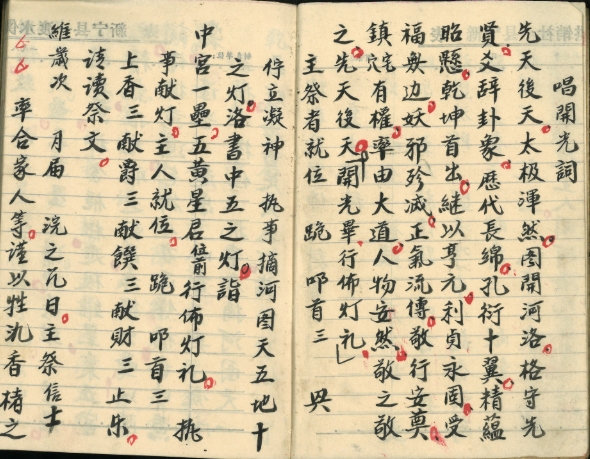 唱開光詞
先天後天太极渾然图開河洛格守先
賢爻辞卦象歷代長綿孔衍十翼精蘊
昭懸乾坤首出継以亨元利貞永固受
福無边妖邪殄滅正氣流傳敬行安奠
鎮宅有權率由大道人物安然敬之敬
之先天後天開光畢行佈灯礼
主祭者就位 跪 叩首三 興
佇立凝神 执事摘河图天五地十
之灯洛書中五之灯詣
中宮一壘五黃星君位前行佈灯礼 执
事献灯主人就位 跪 叩首三
上香三献爵三献饌三献財三止乐
读祭文
維歲次 月届 浣之冗日主祭信士
率合家人等謹以牲氿香楮之